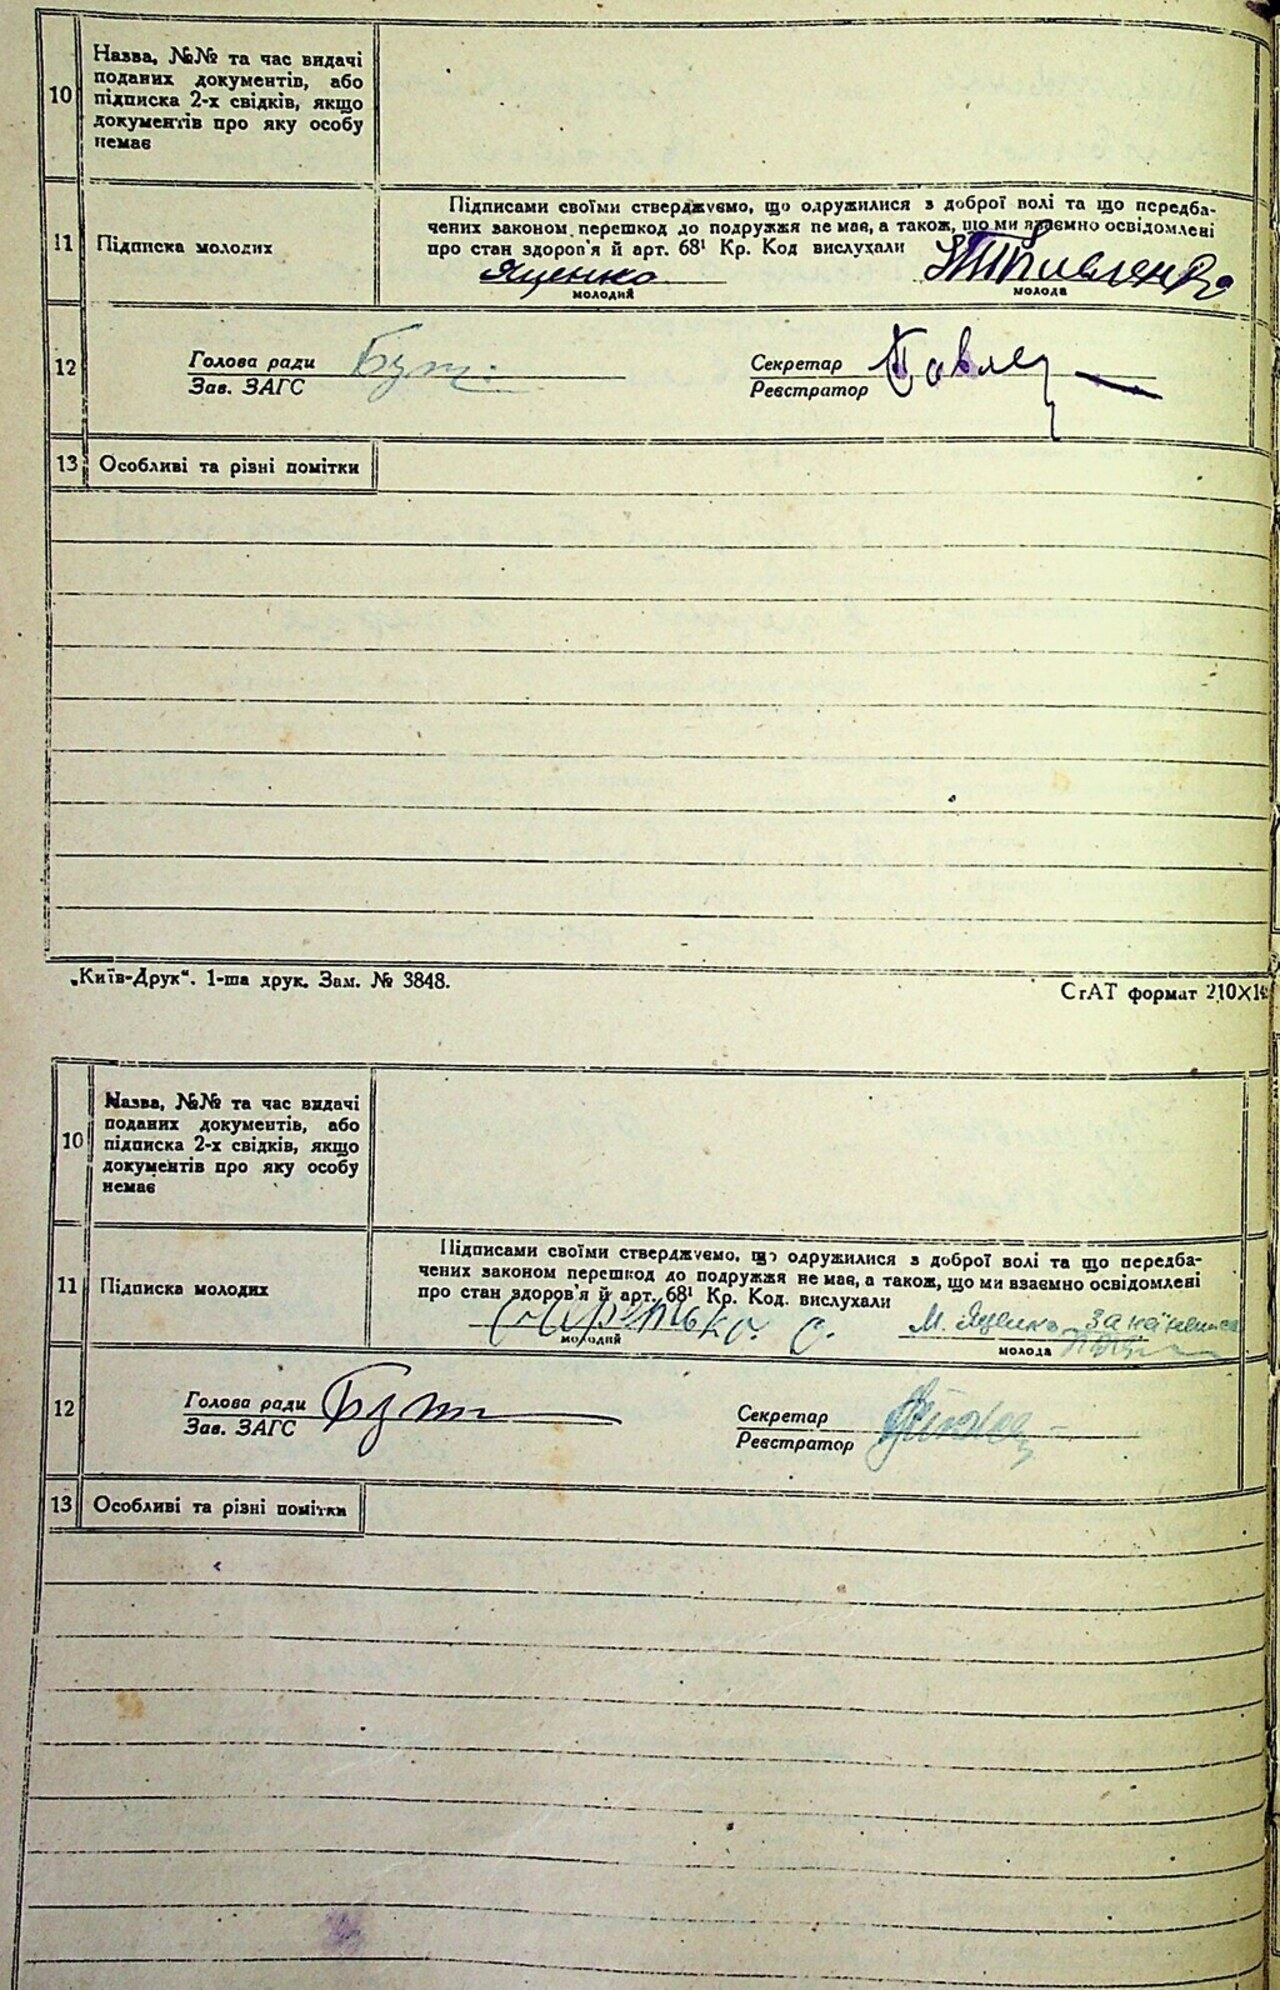 10
Назва, №№ та час видачі
поданих документів, або
підписка 2-х свідків, якщо
документів про яку особу
немає
11
Підписка молодих
Підписами своїми стверджуємо, що одружилися з доброї волі та що передба-
чених законом перешкод до подружжя не має, а також, що ми взаємно освідомлені
про стан здоров'я й арт. 68¹ Кр. Код вислухали
Ященко
молодий
молода
12
Голова ради
Зав. ЗАГС
Секретар
Реєстратор
13
Особливі та різні помітки
„Київ-Друк“. 1-ша друк. Зам. № 3848.
СгАТ формат 210×14
10
Назва, №№ та час видачі
поданих документів, або
підписка 2-х свідків, якщо
документів про яку особу
немає
11
Підписка молодих
Підписами своїми стверджуємо, що одружилися з доброї волі та що передба-
чених законом перешкод до подружжя не має, а також, що ми взаємно освідомлені
про стан здоров'я й арт. 68¹ Кр. Код. вислухали
М. Ященко за
молодий
молода
12
Голова ради
Зав. ЗАГС
Секретар
Реєстратор
13
Особливі та різні помітки